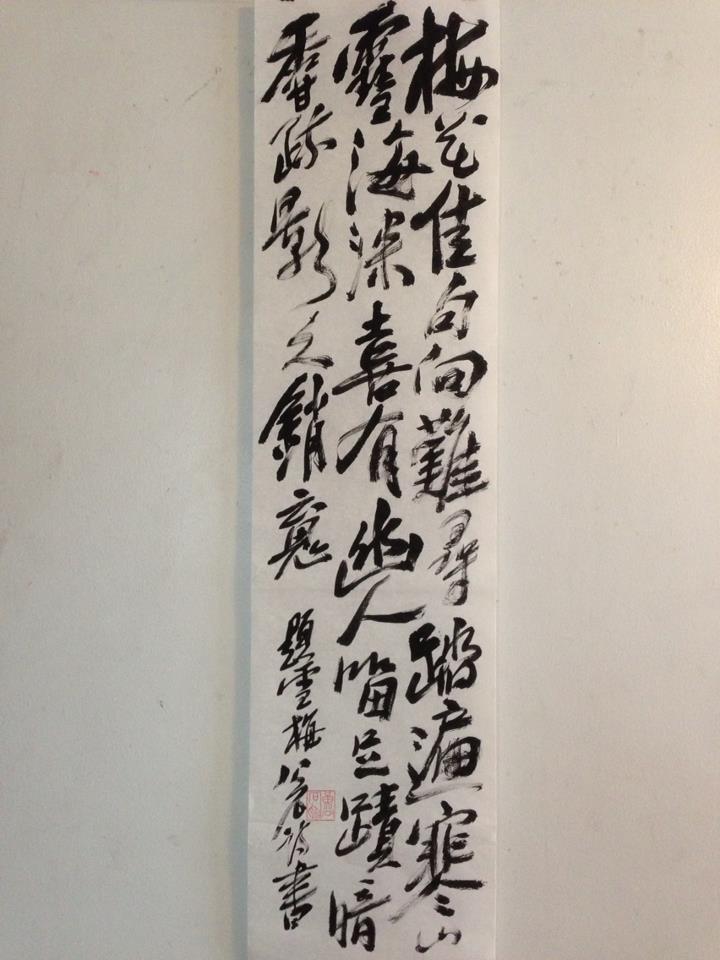 梅花佳句向難尋踏遍寒山
雪海深喜有幽人留足蹟暗
香疏影銷魂
題雪梅書